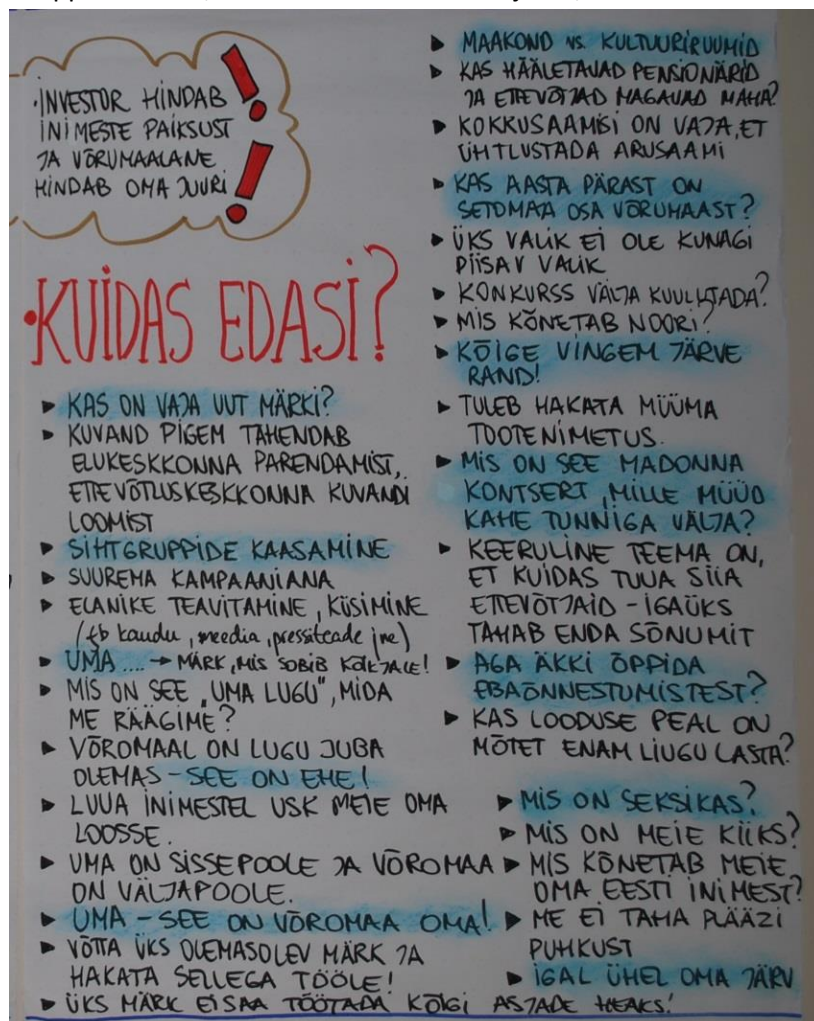 • INVESTOR HINDAB
INIMESTE PAIKSUST
JA VÕRUMAALANE
HINDAB OMA JUURI
!
!
• KUIDAS EDASI?
▶ KAS ON VAJA UUT MÄRKI?
▶ KUVAND PIGEM TÄHENDAB
ELUKESKKONNA PARENDAMIST,
ETTEVÕTLUSKESKKONNA KUVANDI
LOOMIST
▶ SIHTGRUPPIDE KAASAMINE
▶ SUUREMA KAMPAANIANA
▶ ELANIKE TEAVITAMINE, KÜSIMINE
(fb kaudu, meedia, pressiteade jne)
▶ UMA .... → MÄRK, MIS SOBIB KÕIKJALE!
▶ MIS ON SEE "UMA LUGU", MIDA
ME RÄÄGIME?
▶ VÕROMAAL ON LUGU JUBA
OLEMAS - SEE ON EHE!
▶ LUUA INIMESTEL USK MEIE OMA
LOOSSE.
▶ UMA ON SISSEPOOLE JA VÕROMAA
ON VÄLJAPOOLE.
▶ UMA - SEE ON VÕROMAA OMA!
▶ VÕTTA ÜKS OLEMASOLEV MÄRK JA
HAKATA SELLEGA TÖÖLE!
▶ ÜKS MÄRK EI SAA TÖÖTADA KÕIGI ASJADE HEAKS!
▶ MAAKOND vs. KULTUURIRUUMID
▶ KAS HÄÄLETAVAD PENSIONÄRID
JA ETTEVÕTJAD MAGAVAD MAHA?
▶ KOKKUSAAMISI ON VAJA, ET
ÜHTLUSTADA ARUSAAMI
▶ KAS AASTA PÄRAST ON
SETOMAA OSA VÕRUMAAST?
▶ ÜKS VALIK EI OLE KUNAGI
PIISAV VALIK
▶ KONKURSS VÄLJA KUULUTADA?
▶ MIS KÕNETAB NOORI?
▶ KÕIGE VINGEM JÄRVE
RAND!
▶ TULEB HAKATA MÜÜMA
TOOTENIMETUS.
▶ MIS ON SEE MADONNA
KONTSERT, MILLE MÜÜD
KAHE TUNNIGA VÄLJA?
▶ KEERULINE TEEMA ON,
ET KUIDAS TUUA SIIA
ETTEVÕTJAID - IGAÜKS
TAHAB ENDA SÕNUMIT
▶ AGA ÄKKI ÕPPIDA
EBAÕNNESTUMISTEST?
▶ KAS LOODUSE PEAL ON
MÕTET ENAM LIUGU LASTA?
▶ MIS ON SEKSIKAS?
▶ MIS ON MEIE KIIKS?
▶ MIS KÕNETAB MEIE
OMA EESTI INIMEST?
▶ ME EI TAHA PLÄÄZI
PUHKUST
▶ IGAL ÜHEL OMA JÄRV